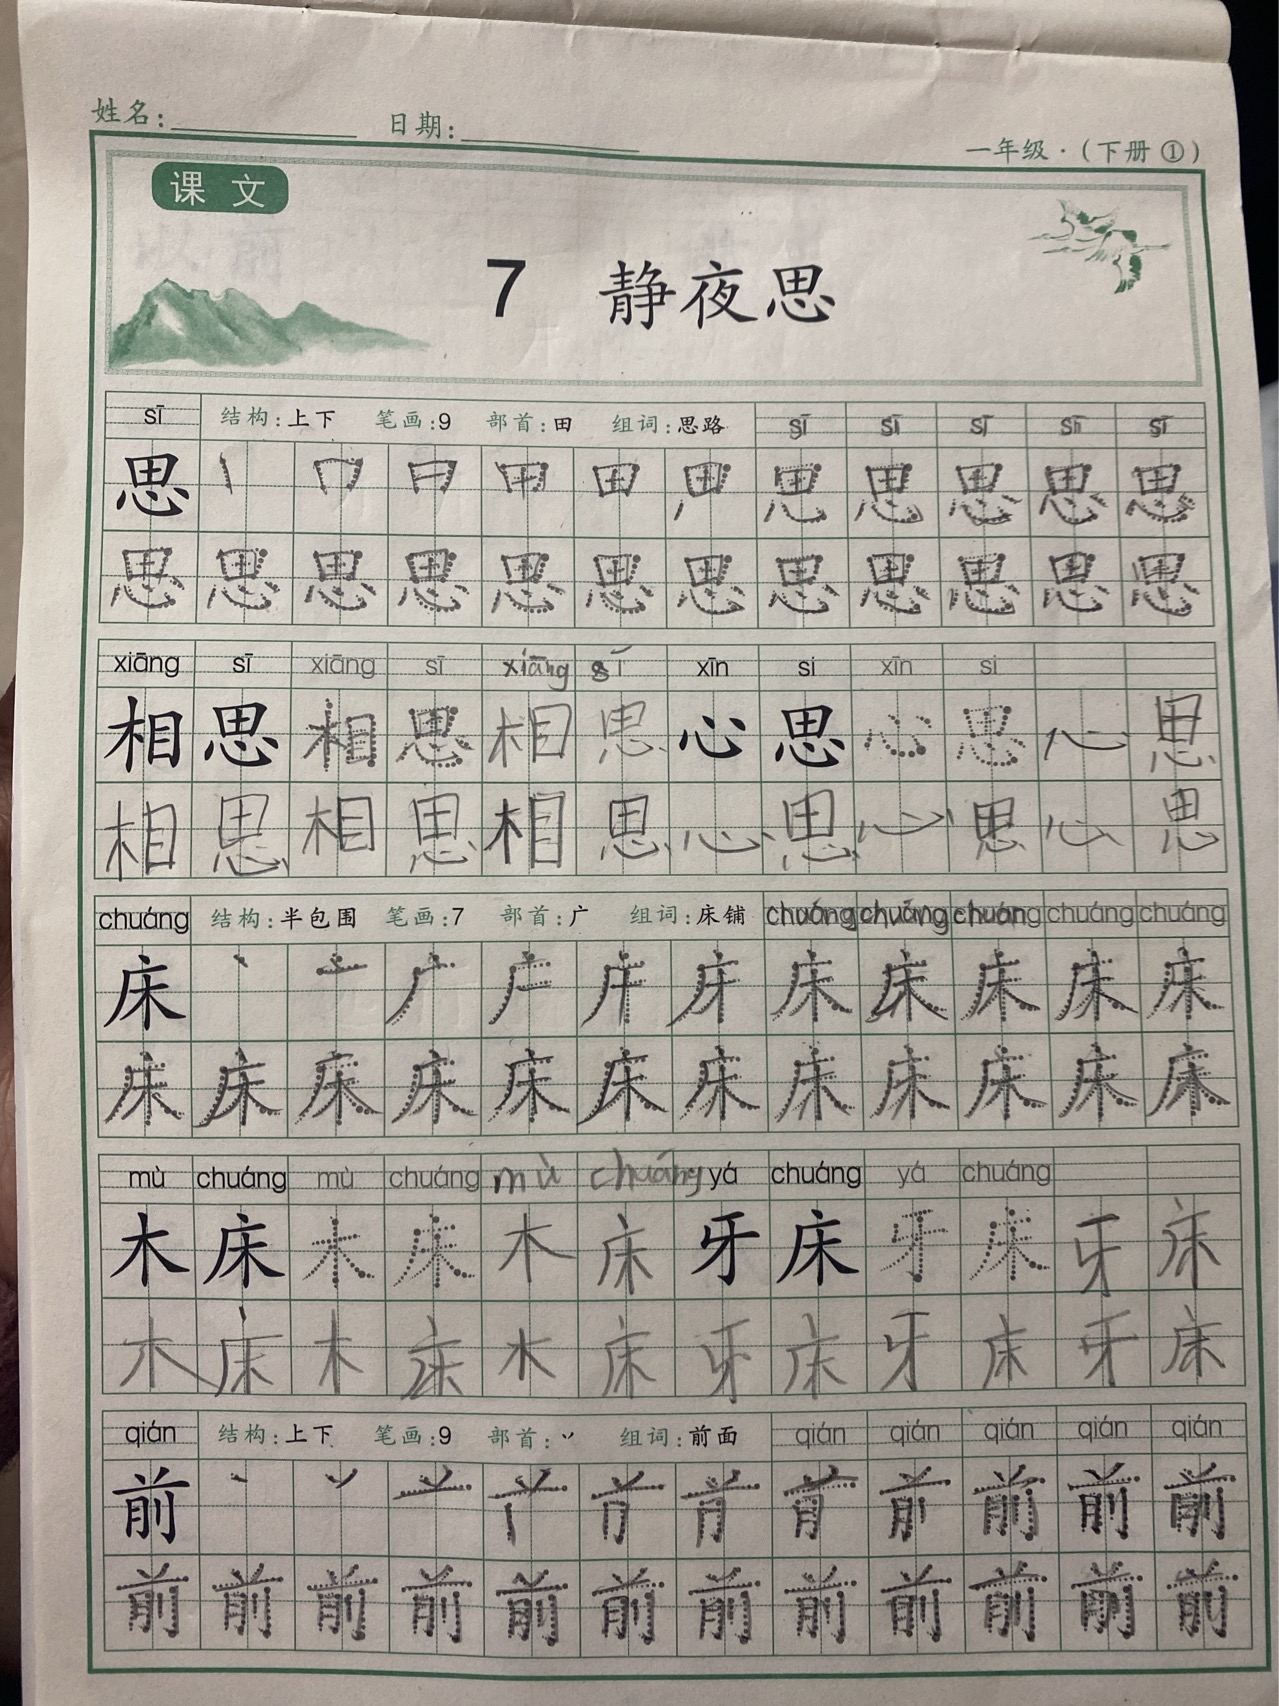 姓名: 日期:
一年级·(下册①)
课文
7 静夜思
sī 结构:上下 笔画:9 部首:田 组词:思路 sī sī sī sī sī
思 丨 冂 日 甲 田 思 思 思 思 思
思 思 思 思 思 思 思 思 思 思 思 思
xiāng sī xiāng sī xiāng sī xīn si xīn si
相 思 相 思 相 思 心 思 心 思 心 思
相 思 相 思 相 思 心 思 心 思 心 思
chuáng 结构:半包围 笔画:7 部首:广 组词:床铺 chuáng chuáng chuáng chuáng chuáng
床 丶 亠 广 床 床 床 床 床
床 床 床 床 床 床 床 床 床 床 床 床
mù chuáng mù chuáng mù chuáng yá chuáng yá chuáng
木 床 木 床 木 床 牙 床 牙 床 牙 床
木 床 木 床 木 床 牙 床 牙 床 牙 床
qián 结构:上下 笔画:9 部首:丷 组词:前面 qián qián qián qián qián
前 丶 丷 前 前 前
前 前 前 前 前 前 前 前 前 前 前 前